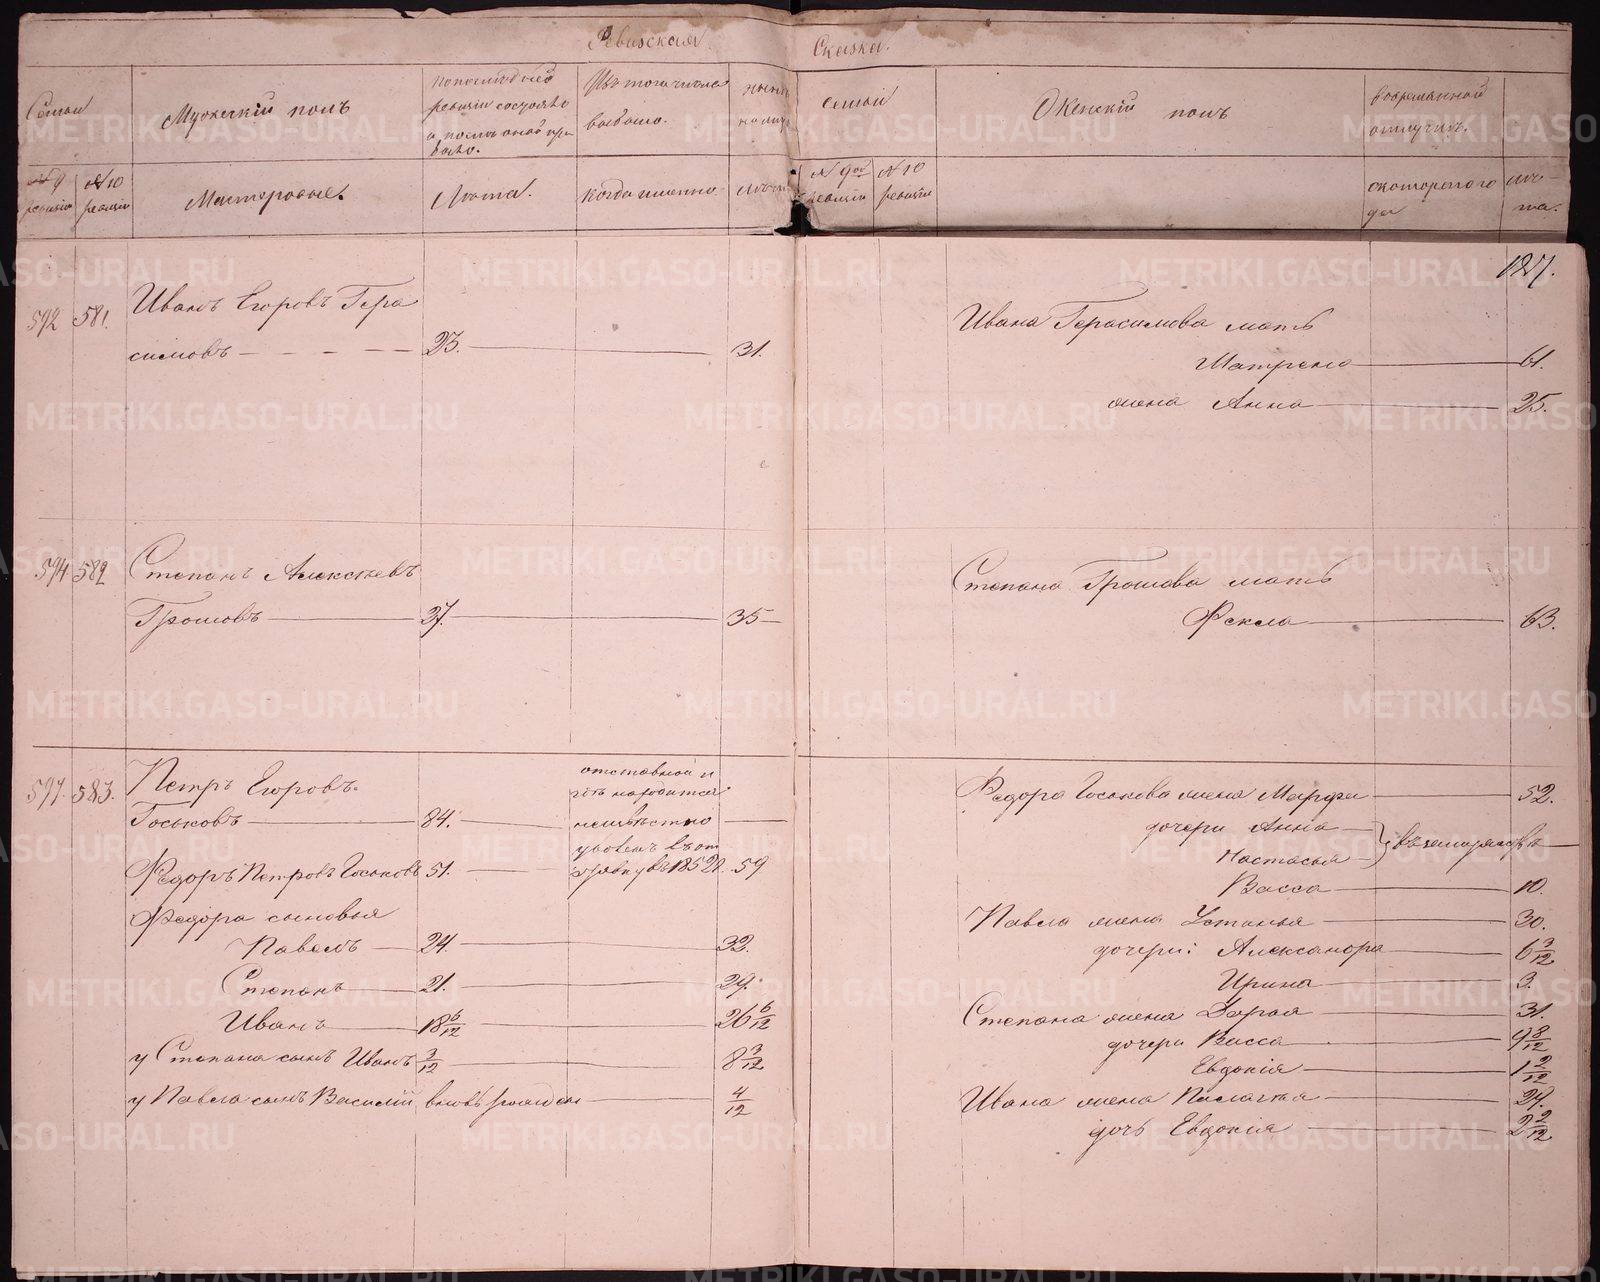 Ревизская Сказка.
Семьи
Мужескій полъ
По последней
ревизіи состояло
и после оной при
было.
Изъ того числа
выбыло.
ныне
на лицо
семьи
Женскій полъ
во временной
отлучке.
№ 9 ревизіи
№ 10 ревизіи
Мастеровые.
Лета.
Когда именно.
лета
№ 9ой ревизіи
№ 10 ревизіи
съ котораго го
да
ле-
та.
127.
592 581. Иванъ Егоровъ Гера
симовъ 23. 31.
Ивана Герасимова мать
Матрена 61.
жена Анна 25.
594 582 Степанъ Алексеевъ
Грошовъ 27. 35
Степана Грошова мать
Фекла 63.
597. 583. Петръ Егоровъ
Госьковъ 84. отставной и
где находится
неизвестно
Федоръ Петровъ Госьковъ 51. уволенъ въ от
ставку въ 1852 г. 59
Федора сыновья
Павелъ 24 32.
Степанъ 21. 29.
Иванъ 18 6/12 26 6/12
у Степана сынъ Иванъ 3/12 8 3/12
у Павла сынъ Василій вновь рожден 4/12
Федора Госькова жена Марфа 52.
дочери Анна
Настасья въ замужстве
Васса 10.
Павла жена Устинья 30.
дочери: Александра 6 3/12
Ирина 3.
Степана жена Дарья 31.
дочери Васса 9 8/12
Евдокія 1 2/12
Ивана жена Палагея 24.
дочь Евдокія 2 2/12
METRIKI.GASO-URAL.RU